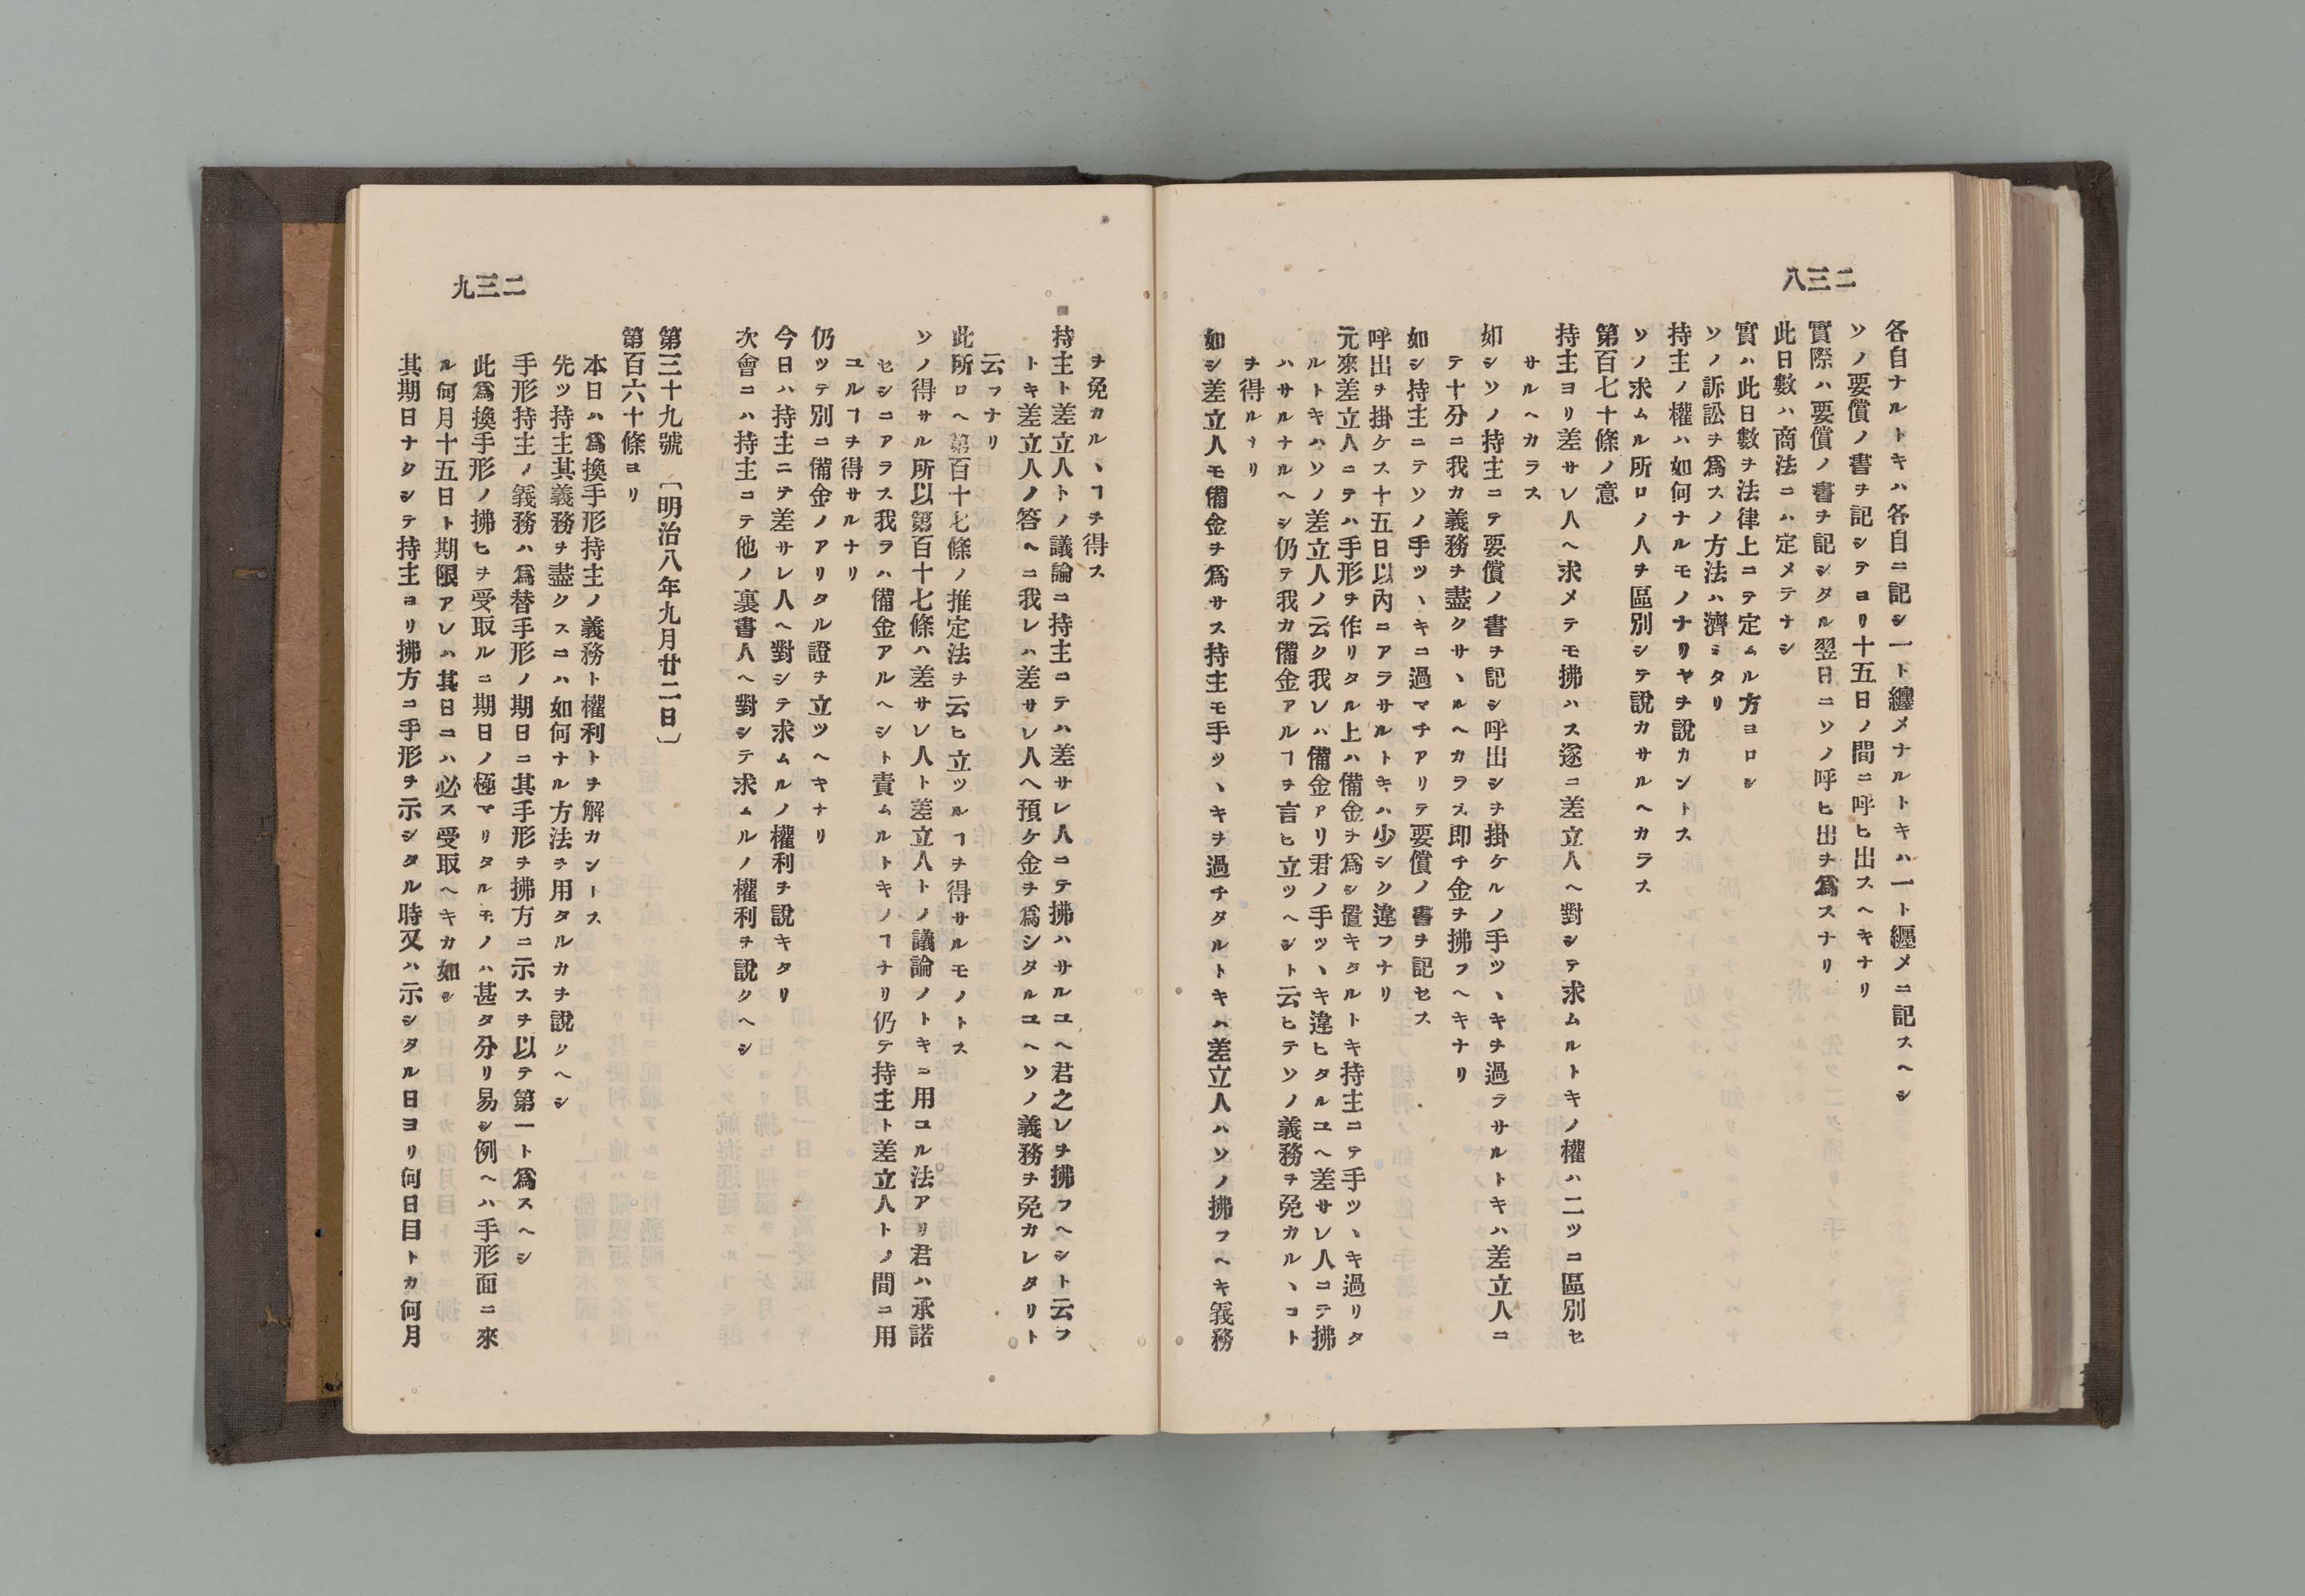 二三八
各自ナルトキハ各自ニ記シ一ト纏メナルトキハ一ト纏メニ記スヘシ
ソノ要償ノ書ヲ記シテヨリ十五日ノ間ニ呼ヒ出スヘキナリ
實際ハ要償ノ書ヲ記シタル翌日ニソノ呼ヒ出ヲ爲スナリ
此日數ハ商法ニハ定メテナシ
實ハ此日數ヲ法律上ニテ定ムル方ヨロシ
ソノ訴訟ヲ爲スノ方法ハ濟ミタリ
持主ノ權ハ如何ナルモノナリヤヲ說カントス
ソノ求ムル所ロノ人ヲ區別シテ說カサルヘカラス
第百七十條ノ意
持主ヨリ差サレ人ヘ求メテモ拂ハス遂ニ差立人ヘ對シテ求ムルトキノ權ハ二ツニ區別セ
サルヘカラス
如シソノ持主ニテ要償ノ書ヲ記シ呼出シヲ掛ケルノ手ツヽキヲ過ラサルトキハ差立人ニ
テ十分ニ我カ義務ヲ盡クサヽルヘカラス即チ金ヲ拂フヘキナリ
如シ持主ニテソノ手ツヽキニ過マチアリテ要償ノ書ヲ記セス
呼出ヲ掛ケス十五日以內ニアラサルトキハ少シク違フナリ
元來差立人ニテハ手形ヲ作リタル上ハ備金ヲ爲シ置キタルトキ持主ニテ手ツヽキ過リタ
ルトキハソノ差立人ノ云ク我レハ備金アリ君ノ手ツヽキ違ヒタルユヘ差サレ人ニテ拂
ハサルナルヘシ仍テ我カ備金アルヿヲ言ヒ立ツヘシト云ヒテソノ義務ヲ免カルヽコト
ヲ得ルナリ
如シ差立人モ備金ヲ爲サス持主モ手ツヽキヲ過チタルトキハ差立人ハソノ拂フヘキ義務
二三九
ヲ免カルヽヿヲ得ス
持主ト差立人トノ議論ニ持主ニテハ差サレ人ニテ拂ハサルユヘ君之レヲ拂フヘシト云フ
トキ差立人ノ答ヘニ我レハ差サレ人ヘ預ケ金ヲ爲シタルユヘソノ義務ヲ免カレタリト
云フナリ
此所ロヘ第百十七條ノ推定法ヲ云ヒ立ツルヿヲ得サルモノトス
ソノ得サル所以第百十七條ハ差サレ人ト差立人トノ議論ノトキニ用ユル法アリ君ハ承諾
セシニアラス我ラハ備金アルヘシト責ムルトキノヿナリ仍テ持主ト差立人トノ間ニ用
ユルヿヲ得サルナリ
仍ツテ別ニ備金ノアリタル證ヲ立ツヘキナリ
今日ハ持主ニテ差サレ人ヘ對シテ求ムルノ權利ヲ說キタリ
次會ニハ持主ニテ他ノ裏書人ヘ對シテ求ムルノ權利ヲ說クヘシ
第三十九號〔明治八年九月廿二日〕
第百六十條ヨリ
本日ハ爲換手形持主ノ義務ト權利トヲ解カントス
先ツ持主其義務ヲ盡クスニハ如何ナル方法ヲ用タルカヲ說クヘシ
手形持主ノ義務ハ爲替手形ノ期日ニ其手形ヲ拂方ニ示スヲ以テ第一ト爲スヘシ
此爲換手形ノ拂ヒヲ受取ルニ期日ノ極マリタルモノハ甚タ分リ易シ例ヘハ手形面ニ來
ル何月十五日ト期限アレハ其日ニハ必ス受取ヘキカ如シ
其期日ナクシテ持主ヨリ拂方ニ手形ヲ示シタル時又ハ示シタル日ヨリ何日目トカ何月